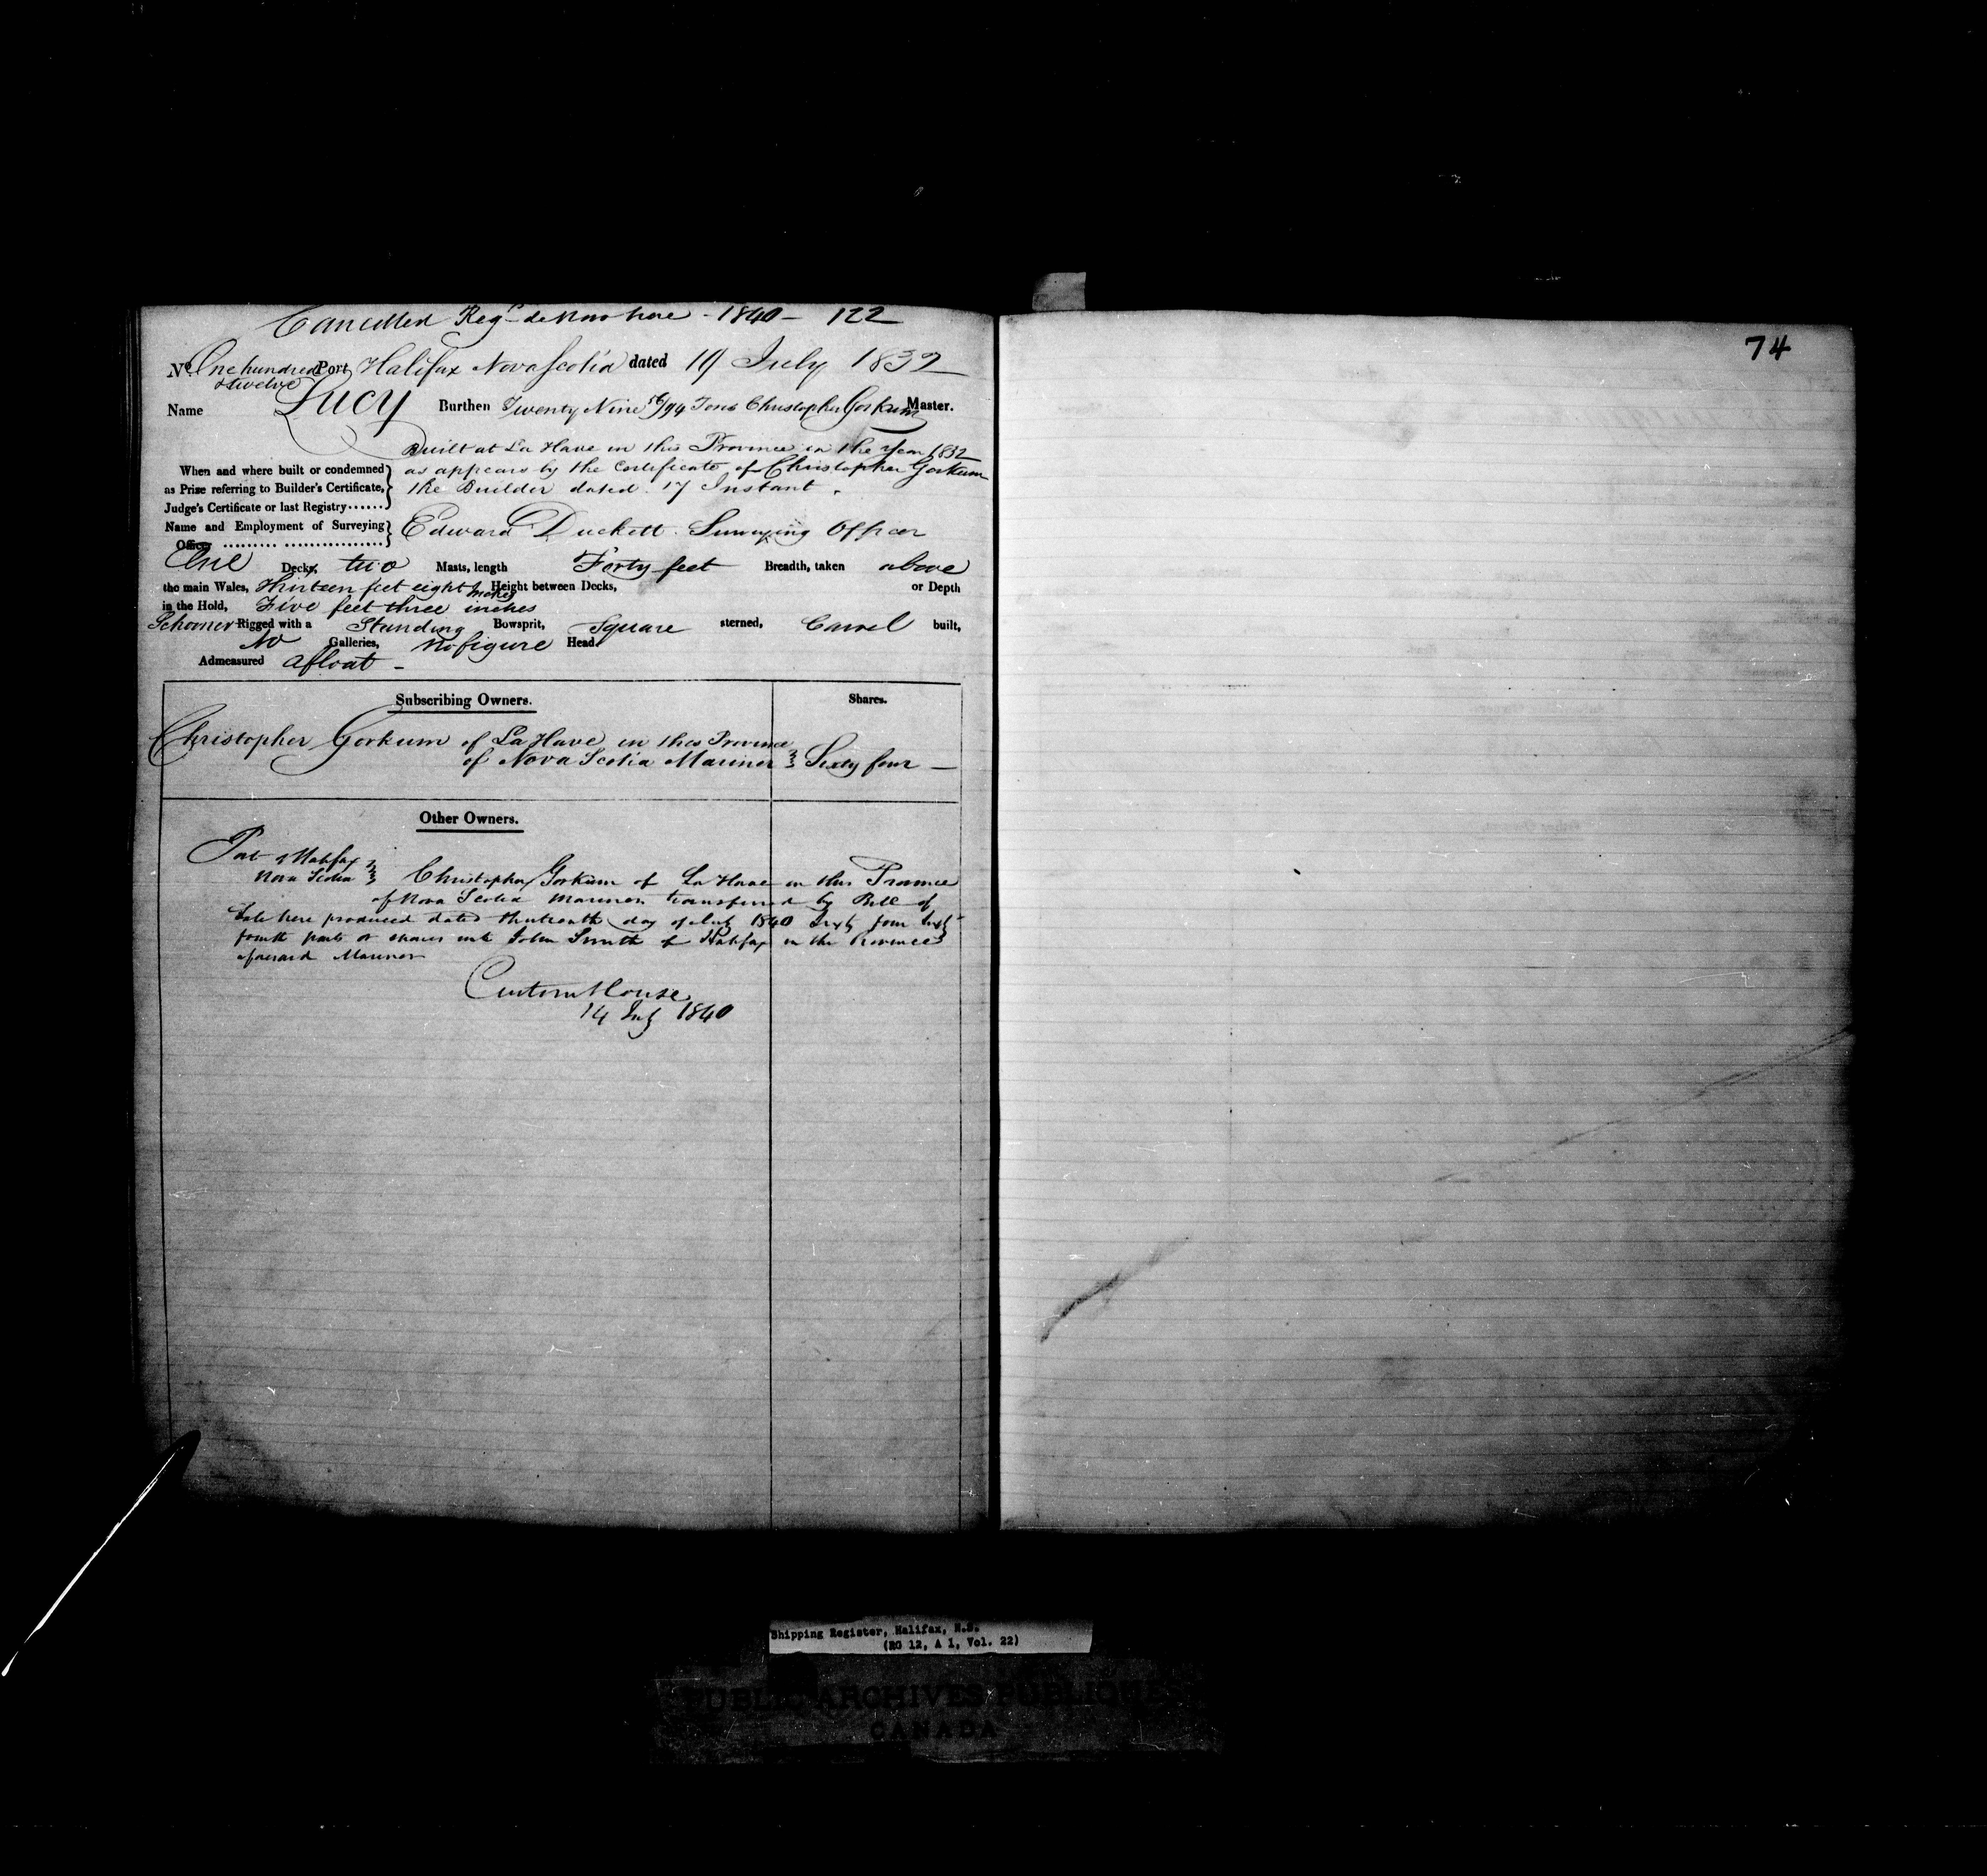 Cancelled Regd de Novo here - 1840 - 122
No. One hundred & twelve Port Halifax Nova Scotia dated 19 July 1832
Name Lucy Burthen Twenty Nine 56/94 Tons Christopher Gorkum Master.
Built at La Have in this Province in the Year 1832
When and where built or condemned as appears by the Certificate of Christopher Gorkum
as Prize referring to Builder's Certificate, the Builder dated 17 Instant.
Judge's Certificate or last Registry......
Name and Employment of Surveying Edward Duckett Surveying Officer
Officer ......... ................
One Decks, two Masts, length Forty feet Breadth, taken above
the main Wales, Thirteen feet eight inches Height between Decks, or Depth
in the Hold, Five feet three inches
Schooner Rigged with a Standing Bowsprit, Square sterned, Carvel built,
No Galleries, No figure Head.
Admeasured afloat -
Subscribing Owners. Shares.
Christopher Gorkum of La Have in this Province
of Nova Scotia Mariner } Sixty four -
Other Owners.
Port Halifax
Nova Scotia } Christopher Gorkum of La Have in this Province
of Nova Scotia Mariner transferred by Bill of
Sale here produced dated thirteenth day of July 1840 Sixty four Sixty
fourth parts or shares unto John Smith of Halifax in the Province
aforesaid Mariner
Custom House
14 July 1840
74
Shipping Register, Halifax, N.S.
(RG 12, A 1, Vol. 22)
PUBLIC ARCHIVES PUBLIQUES
CANADA